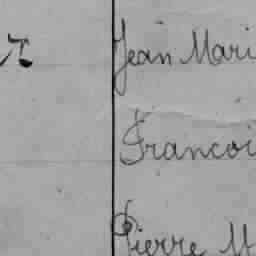 Jean Mari
Francoi
Pierre M